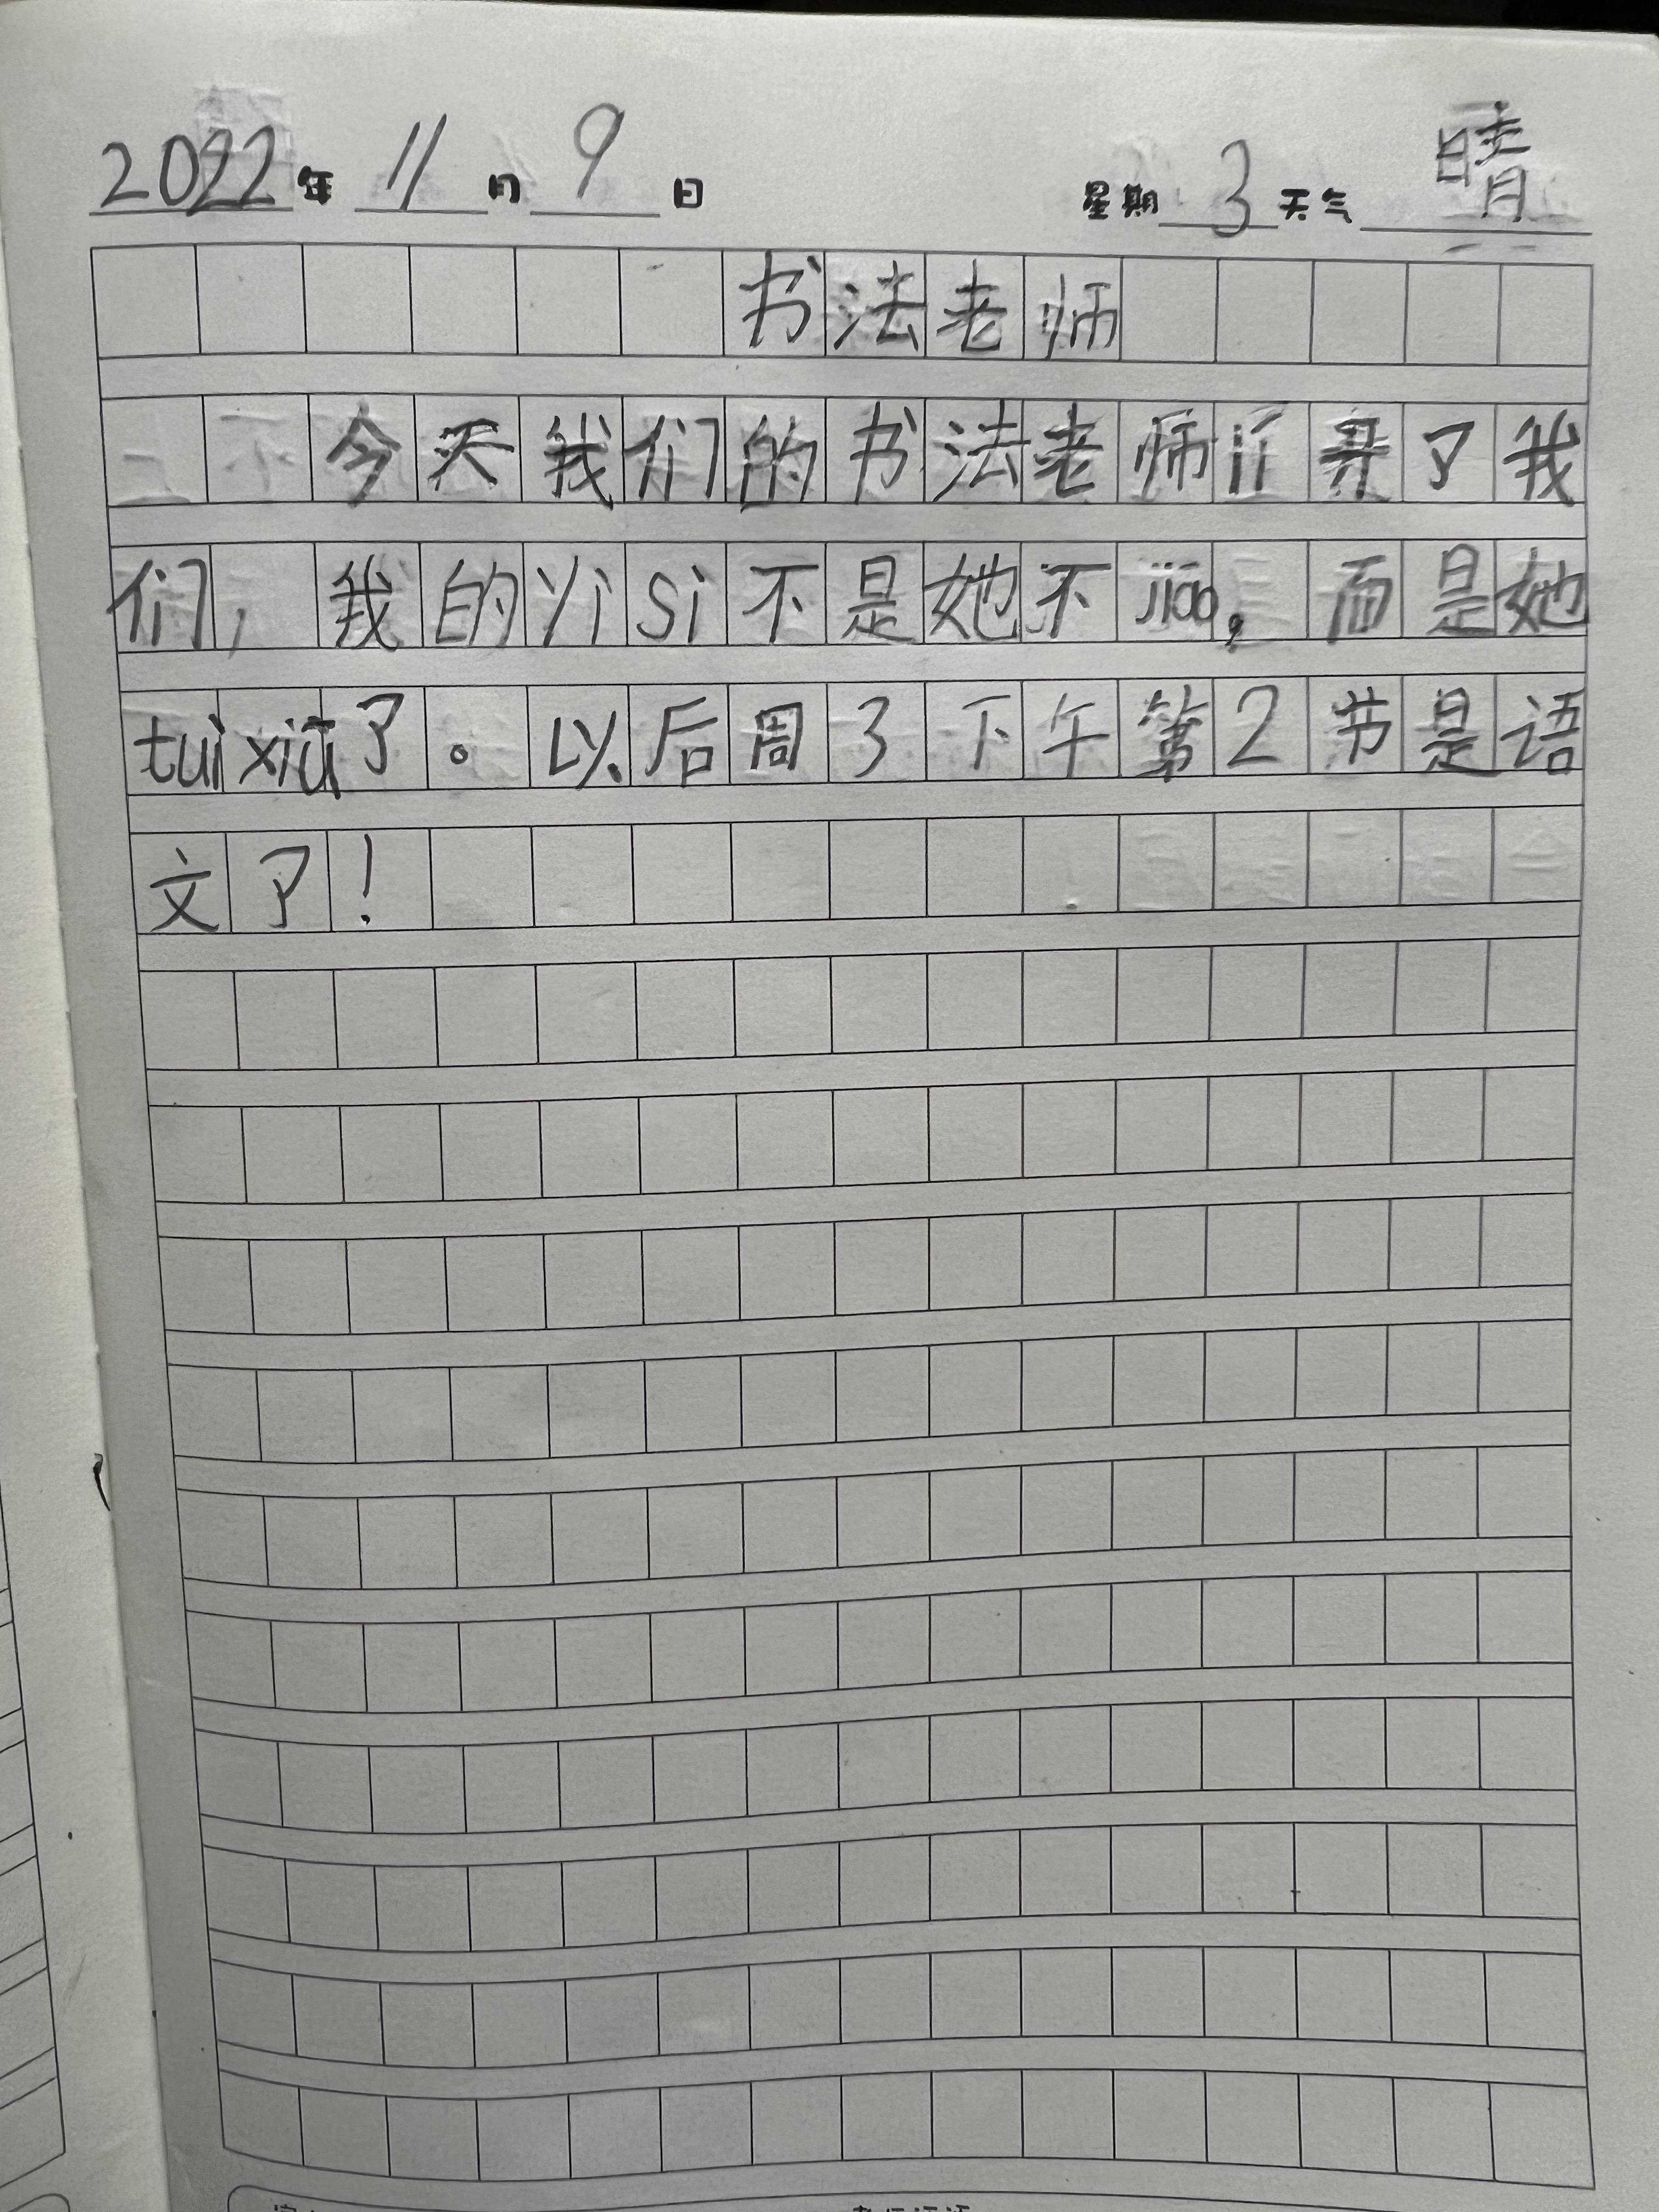 2022年 11月 9日 星期3 天气 晴
书法老师
今天我们的书法老师了我
们，我的yi si不是她不jiāo，而是她
tuì xiū了。以后周3下午第2节是语
文了！